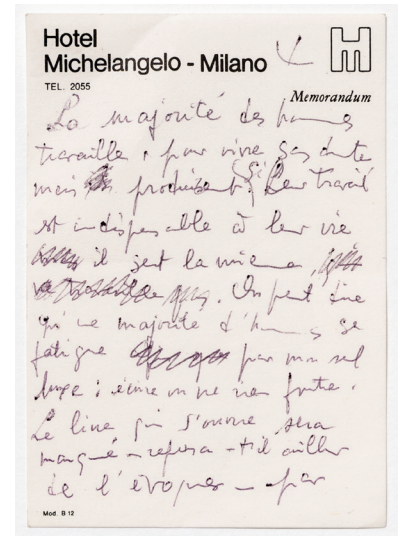 Hotel
Michelangelo - Milano
TEL. 2055
Memorandum
La majorité des hommes
travaille, pour vivre sans doute
mais produisent. Si leur travail
est indispensable à leur vie
il sert la mienne,
. On peut dire
qu'une majorité d'hommes se
fatigue pour mon seul
luxe : écrire ou ne rien foutre.
Le livre qui s'ouvre sera
marqué - refusa-t-il ailleurs
de l' - par
Mod. B 12